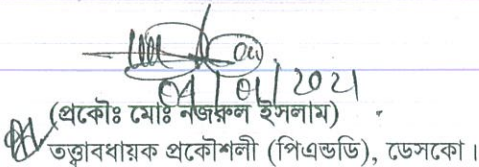 04/01/2021
(প্রকৌঃ মোঃ নজরুল ইসলাম)
তত্ত্বাবধায়ক প্রকৌশলী (পিএন্ডডি), ডেসকো।